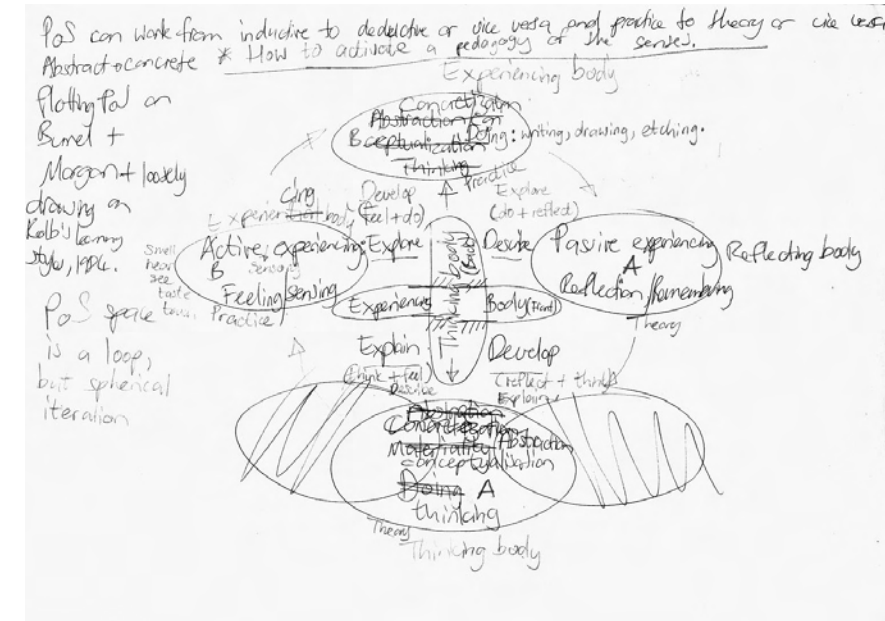 PoS can work from inductive to deductive or vice versa and practice to theory or vice versa
Abstract → concrete * How to activate a pedagogy of the senses.
Plotting PoS on
Burnel +
Morgan + loosely
drawing on
Kolb's learning
styles, 1984.
PoS space
is a loop,
but spherical
iteration
Experiencing body
Concretization
Abstraction
B Doing: writing, drawing, etching.
Thinking
Practice
Develop
(feel + do)
Explore
(do + reflect)
body
Active experiencing
B sensory
Feeling/sensing
Practice
smell
hear
see
taste
Explore
Describe
Thinking body
(Back)
Passive experiencing
A
Reflection/Remembering
Theory
Reflecting body
Experiencing
Body (Front)
Explain
(think + feel)
Describe
Develop
(reflect + think)
Explain
Abstraction
Materiality/Abstraction
conceptualisation
Doing A
thinking
Theory
Thinking body